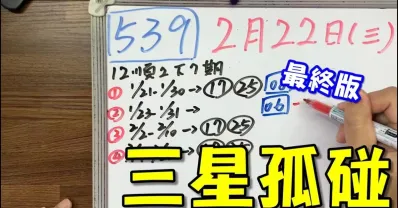 539 2月22日(三)
12順2下7期
① 1/21-1/30→ ⑰ ㉕ 06
② 1/23-1/31→ 06
③ 2/2-2/10→ ⑰ ㉕
最終版
三星孤碰